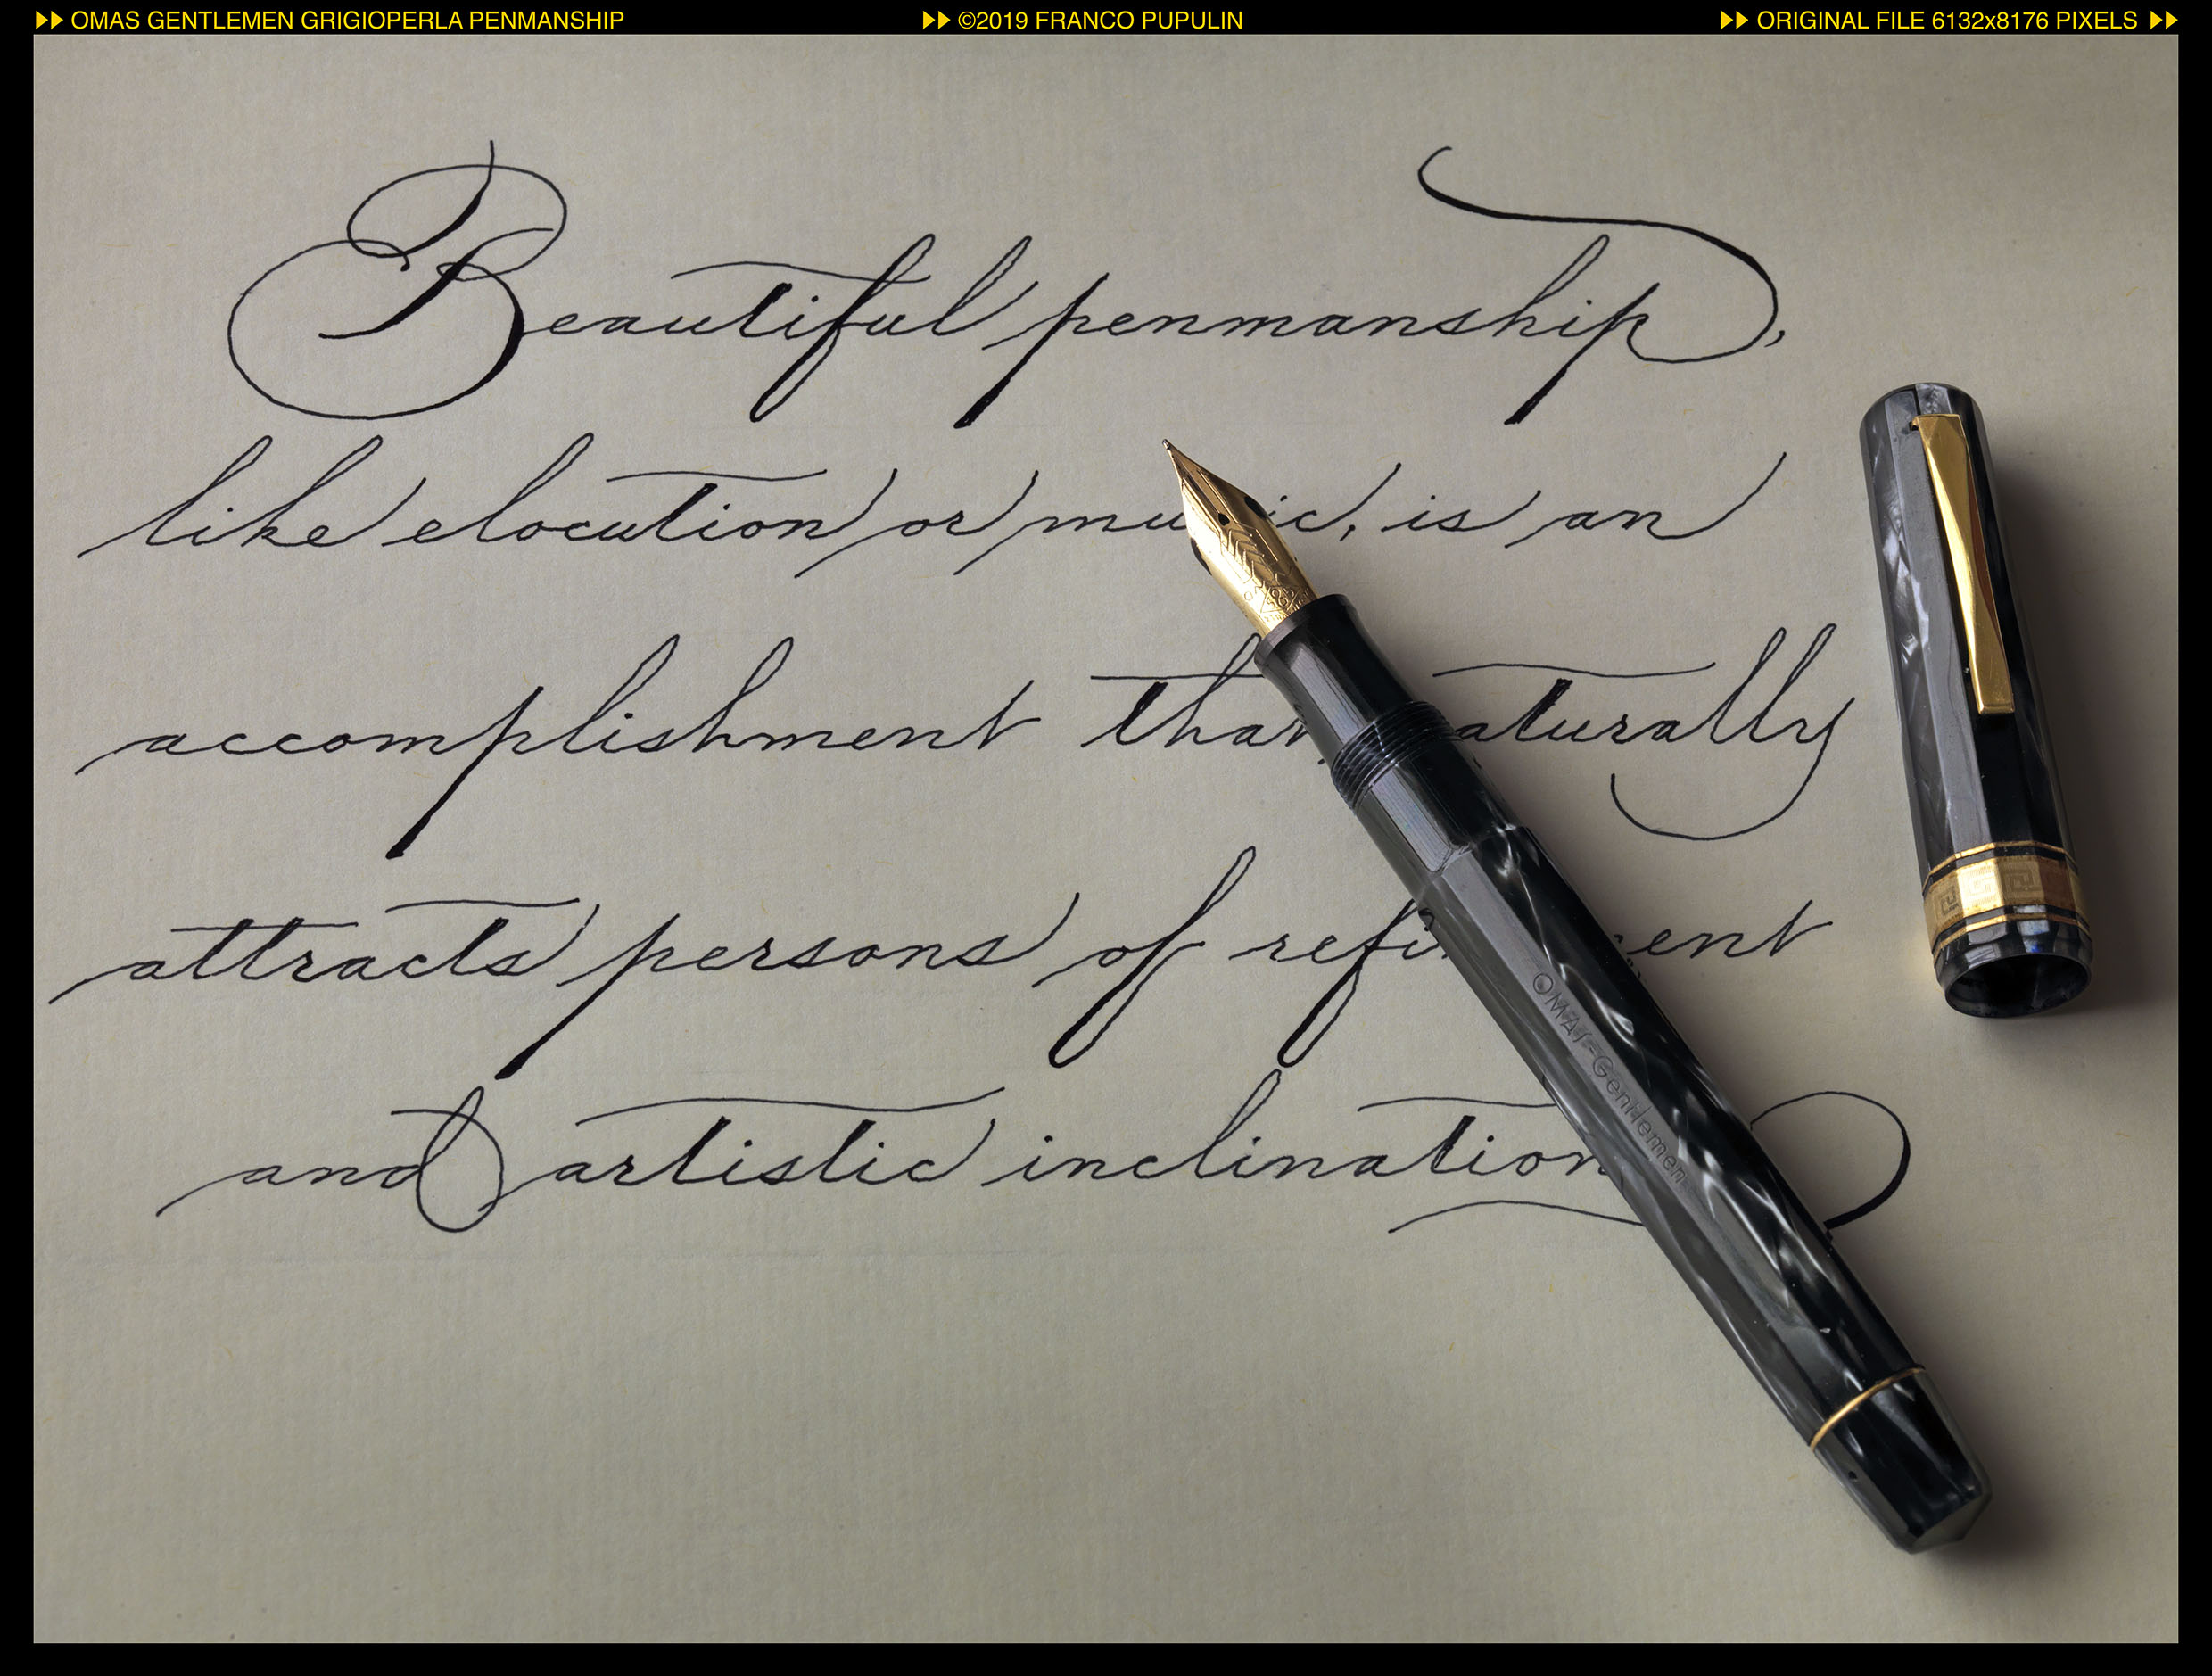 OMAS GENTLEMEN GRIGIOPERLA PENMANSHIP ©2019 FRANCO PUPULIN ORIGINAL FILE 6132x8176 PIXELS
Beautiful penmanship,
like elocution or music, is an
accomplishment that naturally
attracts persons of refinement
and artistic inclination
OMAS-Gentlemen